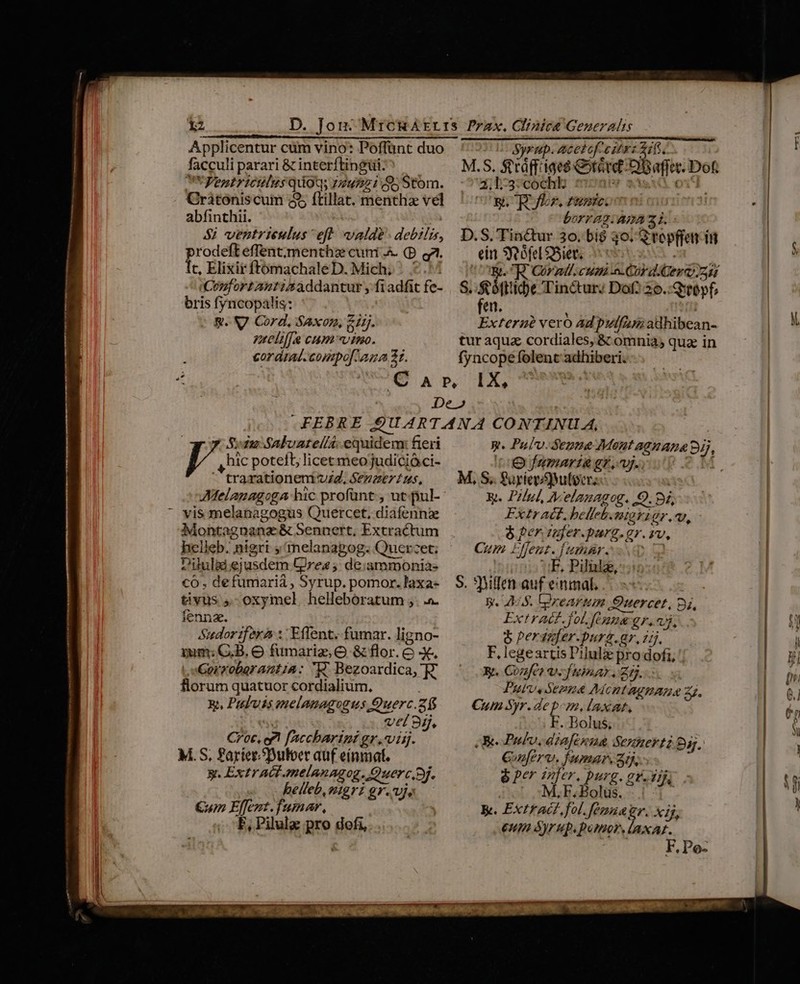 12 D. Joh. Michaelis Prax. Clinicæ Generalis
Applicentur cum vino: Poſſunt duo
ſacculi parari & interſtingui.
Ventriculus quoq;
Cratoniscum & ſtillat. menthæ vel
abſinthii.
Si ventriculus eſt valdè debilis,
prodeſt eſſent. menthæ cum
It, Elixir ſtomachale D. Mich.
Confortantia addantur, ſi adſit fe-
bris ſyncopalis:
Cord. Saxon. ℥iij.
meliſſæ cum vino.
cordial. compoſ. ana ℥i.
Syrup. acetoſ. citri
M. S. Kräfftiges Stärck-Waſſer. Doſ.
2, l. 3. cochl.
℞. flor. tunic.
borrag. ana ʒi.
D. S. Tinctur 30. biß 40. Tropffen in
ein Nöſel Bier.
S. Köſtliche Tinctur: Doſ. 20. Tröpf-
fen.
Externè verò ad pulſum adhibean-
tur aquæ cordiales, & omnia, quæ in
ſyncope ſolent adhiberi.
CAP. IX.
De
FEBRE QUARTANA CONTINUA.
V. S. in Salvatellâ equidem fieri
hic poteſt, licet meo judicio ci-
tra rationem: vid. Sennertus.
Melanagoga hic proſunt, ut pul-
vis melanagogus Quercet. diaſennæ
Montagnanæ & Sennert. Extractum
helleb. nigri, melanagog. Quercet.
Pilulæ ejusdem de ammonia-
co, de fumariâ, Syrup. pomor. laxa-
tivus, oxymel helleboratum,
ſennæ.
Sudorifera: Eſſent. fumar. ligno-
rum, C. B. fumariæ, & flor.
Corroborantia: Bezoardica,
florum quatuor cordialium.
℞. Pulvis melanagogus Querc. ʒß
vel ℈ij.
Croc. ſaccharini gr. viij.
M. S. Paxier-Pulver auf einmal.
℞. Extract. melanagog. Querc. ℈j.
helleb. nigri gr. vj.
Cum Eſſent. fumar.
F. Pilulæ pro doſi.
℞. Pulv. Sennæ Montagnanæ ℈ij.
fumariæ gr. vj.
M. S. Laxier-Pulver.
℞. Pilul. Melanagog. Q. ℈i.
Extract. helleb. nigri gr. v.
per inſer. purg. gr. iv.
Cum Eſſent. fumar.
F. Pilulæ.
S. Pillen auf einmal.
Quercet. ℈i.
Extract. fol. ſennæ gr. vj.
per inſer. purg. gr. iij.
F. lege artis Pilulæ pro doſi.
℞. Conſerv. fumar. ʒij.
Pulv. Sennæ Montagnanæ ʒi.
Cum Syr. de pom. laxat.
F. Bolus.
℞. Pulv. diaſennæ Sennerti ℈ij.
Conſerv. fumar. ʒij.
per inſer. purg. gr. iij.
M. F. Bolus.
℞. Extract. fol. ſennæ gr. xij.
cum Syrup. pomor. laxat.
F. Po-